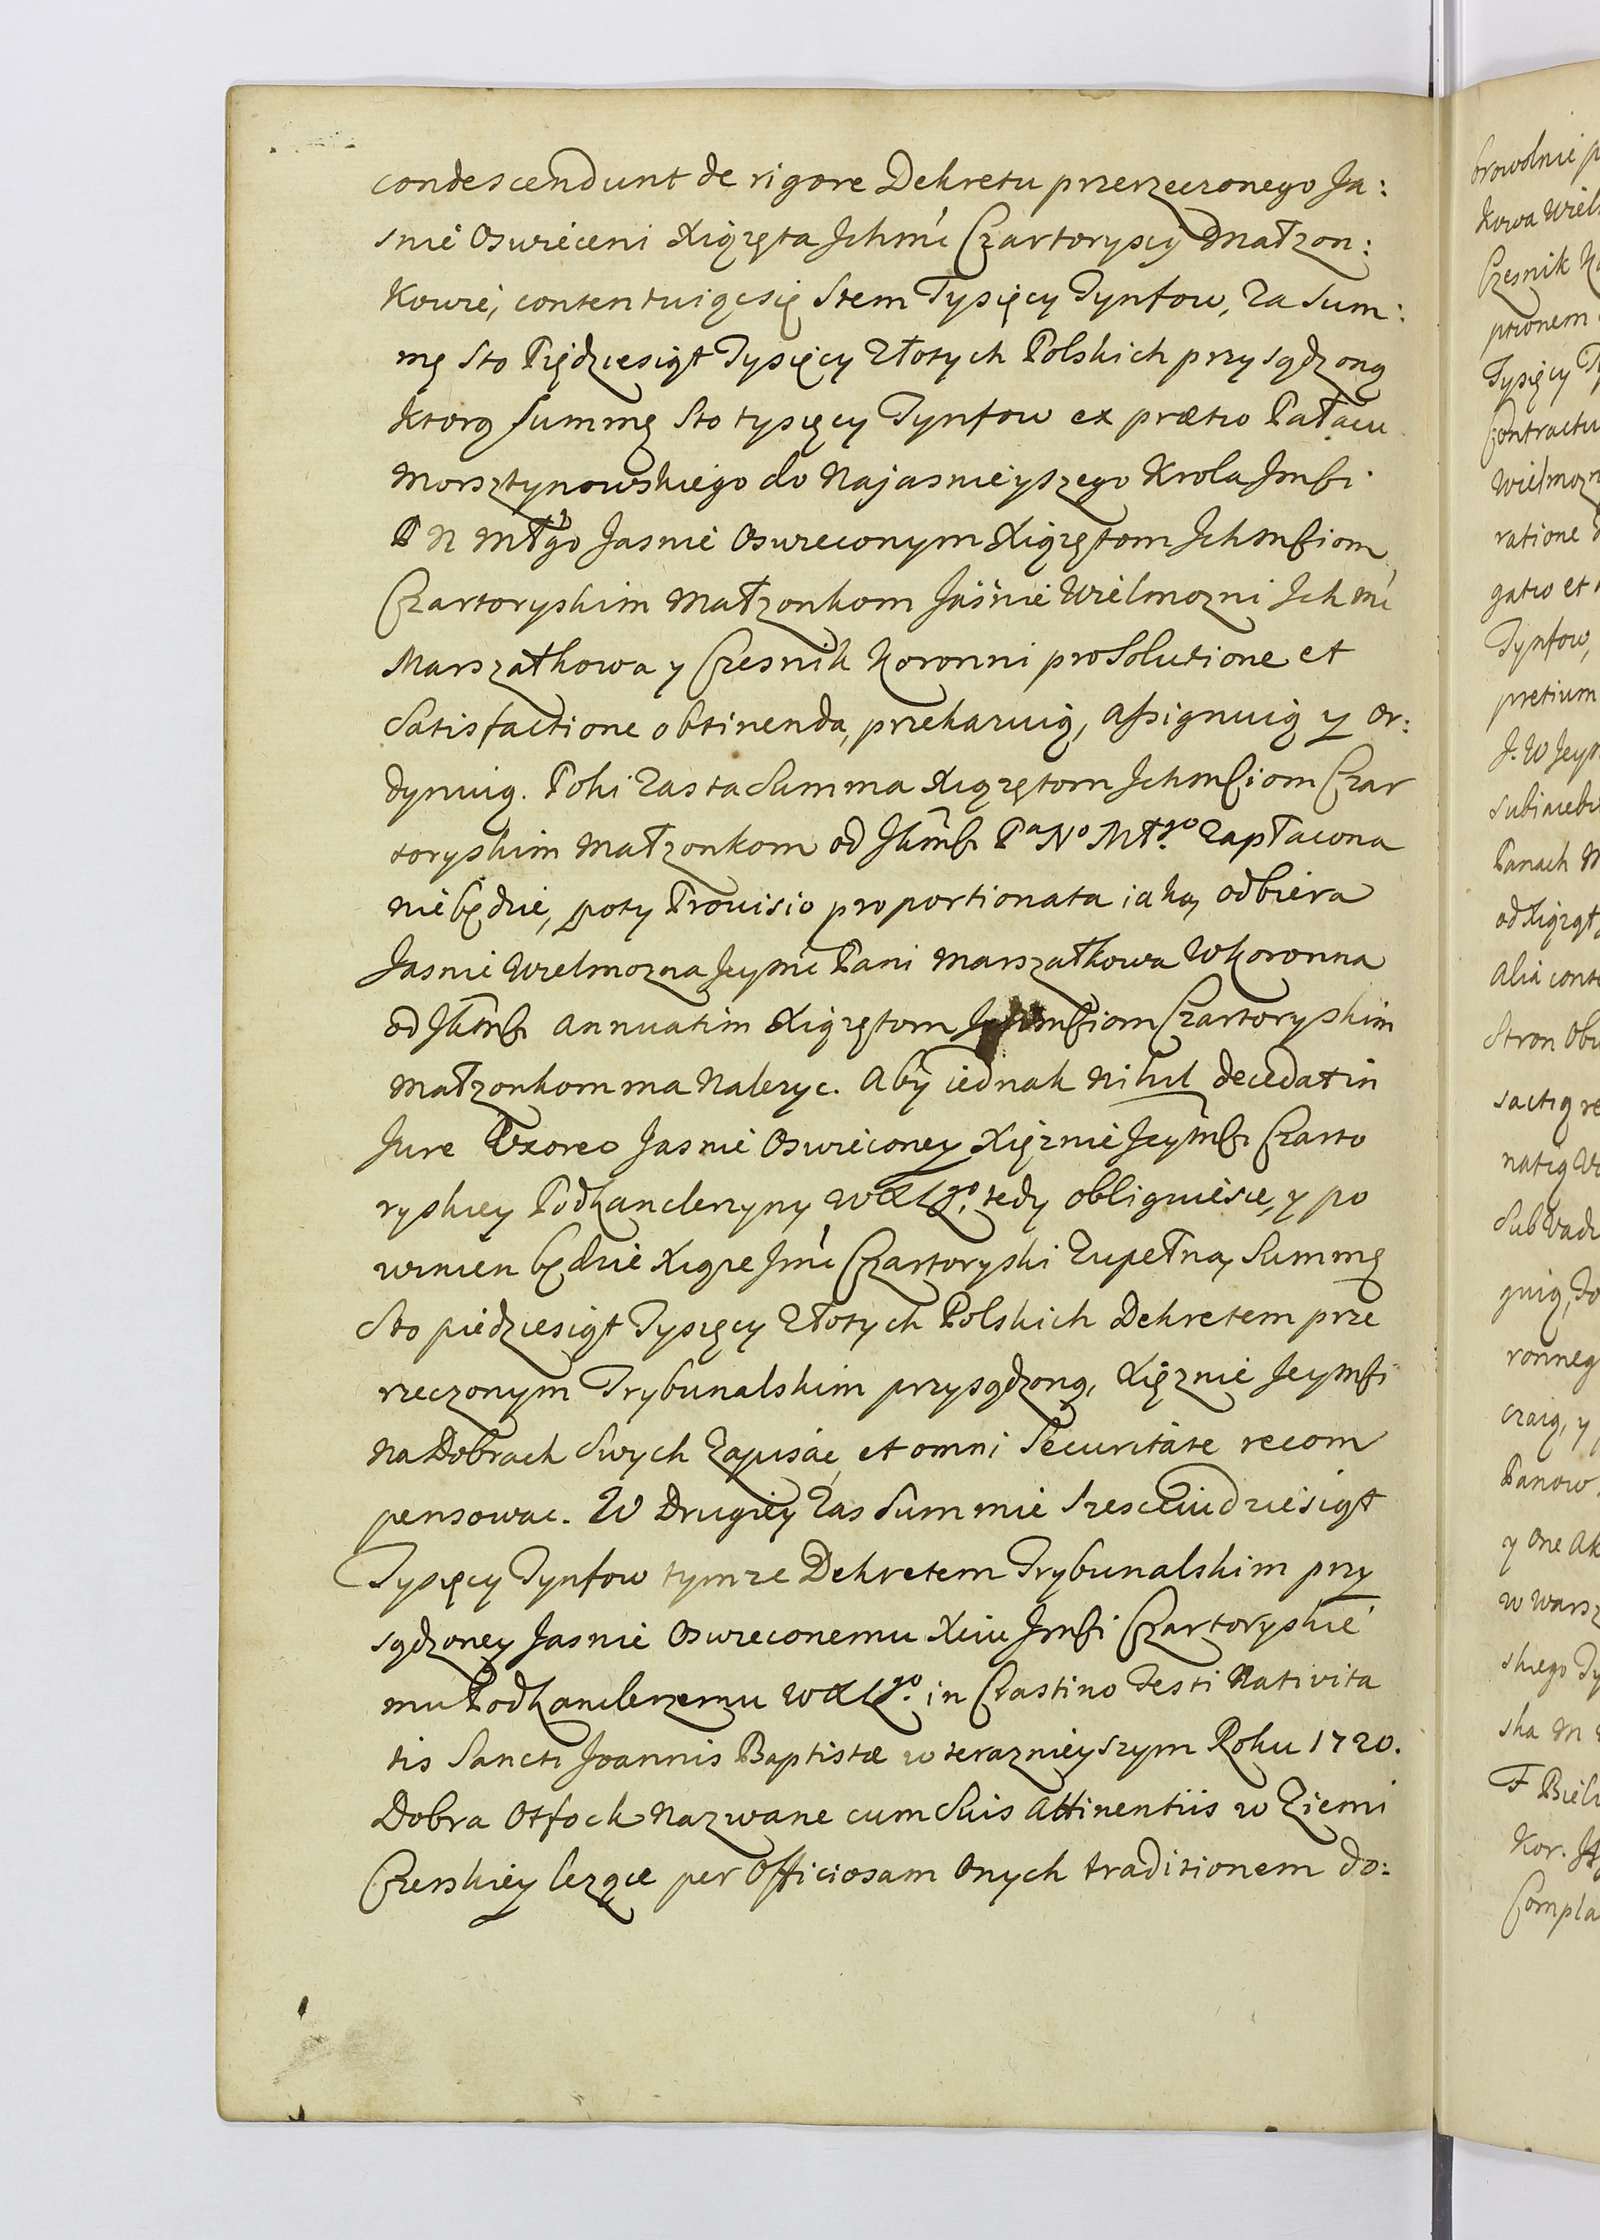 condescendunt de rigore Dekretu przerzeczonego Ja:
snie Oswieceni Xiążęta Ichmć Czartoryscy Małzon:
kowie, contentuiącsię Stem Tysięcy Tynfow, za Sum:
mę Sto Piędziesiąt Tysięcy Złotych Polskich przysądzoną
ktorą Summę Sto tysięcy Tynfow ex prætio Pałacu
Morsztynowskiego do Najasnieyszego Krola Jmści
P N Młgo Jasnie Oswieconym Xiążętom Ichmściom
Czartoryskim Małzonkom Jaśnie Wielmozni Ichmć
Marszałkowa y Czesnik Koronni pro Solutione et
Satisfactione obtinenda, przekazuią, assignuią y or:
dynuią. Poki zas ta Summa Xiążętom Ichmściom Czar
toryskim Małzonkom od JKmści Pᵃ Nᵒ Młᵍᵒ zapłacona
niebędzie, poty Provisio proportionata iaką odbiera
Jasnie Wielmozna Jeymć Pani Marszałkowa WKoronna
od JKmści annuatim Xiążętom Ichmściom Czartoryskim
Małzonkom ma nalezyc. Aby iednak nihil decedat in
Jure Uxoreo Jasnie Oswieconey Xięznie Jeymści Czarto
ryskiey Podkanclerzyny WXLᵍᵒ. tedy obliguiesie, y po
winien będzie Xiąze Jmć Czartoryski zupełną Summę
Sto piedziesiąt Tysięcy Złotych Polskich Dekretem prze
rzeczonym Trybunalskim przysądzoną, Xięznie Jeymści
na Dobrach Swych zapisać, et omni Securitate recom
pensowac. W Drugiey zas Summie Szesciudziesiąt
Tysięcy Tynfow tymze Dekretem Trybunalskim przy
sądzoney Jasnie Oswieconemu Xciu Jmści Czartoryskie
mu Podkanclerzemu WXLᵍᵒ. in Crastino Festi Nativita
tis Sancti Joannis Baptistæ w terazniejszym Roku 1720.
Dobra Otfock nazwane cum Suis Attinentiis w Ziemi
Czerskiey lezące per Officiosam onych traditionem do: